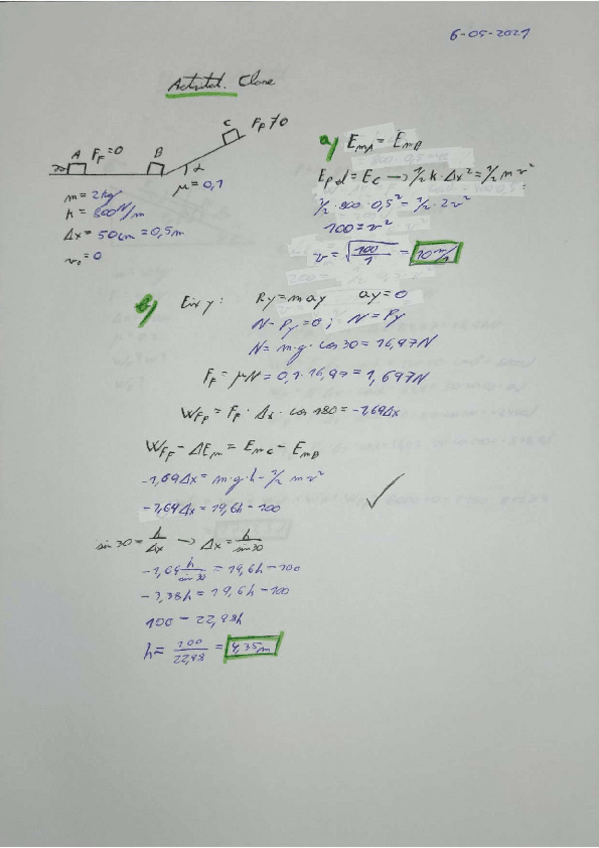 6-05-2021
Activitat. Clase
A F_F=0 B C F_F≠0
α
μ=0,1
m=2kg
K=800N/m
Δx=50cm=0,5m
v₀=0
a) E_mA = E_mB
E_pel=E_c → 1/2 k·Δx²=1/2 m v²
1/2·800·0,5²=1/2·2v²
100=v²
v=√(100/1) = 10 m/s
b) Eix y: Ry=may ay=0
N-Py=0; N=Py
N=m·g·cos30=16,97N
F_F=μN=0,1·16,97=1,697N
W_FF=F_F·Δx·cos180=-1,69Δx
W_FF-ΔE_m=E_mC-E_mB
-1,69Δx=m·g·h-1/2 m·v²
-1,69Δx=19,6h-100
sin30=h/Δx → Δx=h/sin30
-1,69 h/sin30=19,6h-100
-3,38h=19,6h-100
100-22,98h
h=100/22,98=4,35m